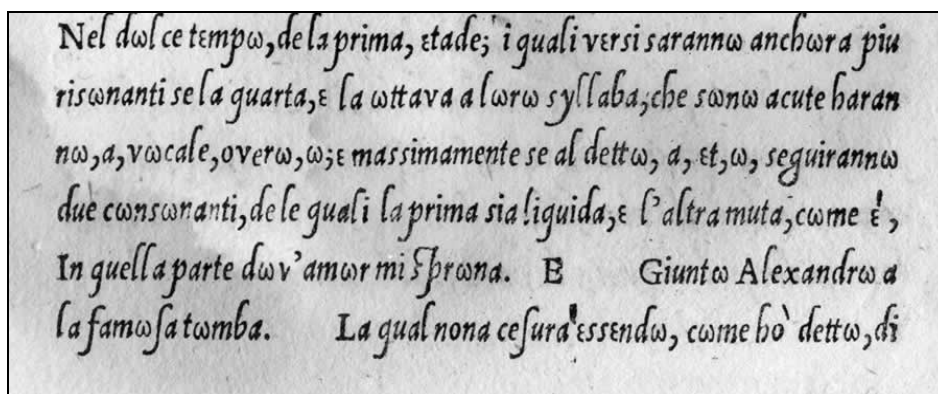 Nel dωl ce tεmpω, de la prima, εtade; i quali vεrsi sarannω anchωra piu
risωnanti se la quarta, ε la ωttava a lωrω syllaba, che sωnω acute haran
nω, a, vωcale, overω, ω; ε massimamente se al dettω, a, εt, ω, seguirannω
due cωnsωnanti, de le quali la prima sia liquida, ε l'altra muta, cωme ε',
In quella parte dωv'amωr mi ſprωna. E Giuntω Alexandrω a
la famωſa tωmba. La qual nona ceſura ε' εssεndω, cωme ho' dettω, di